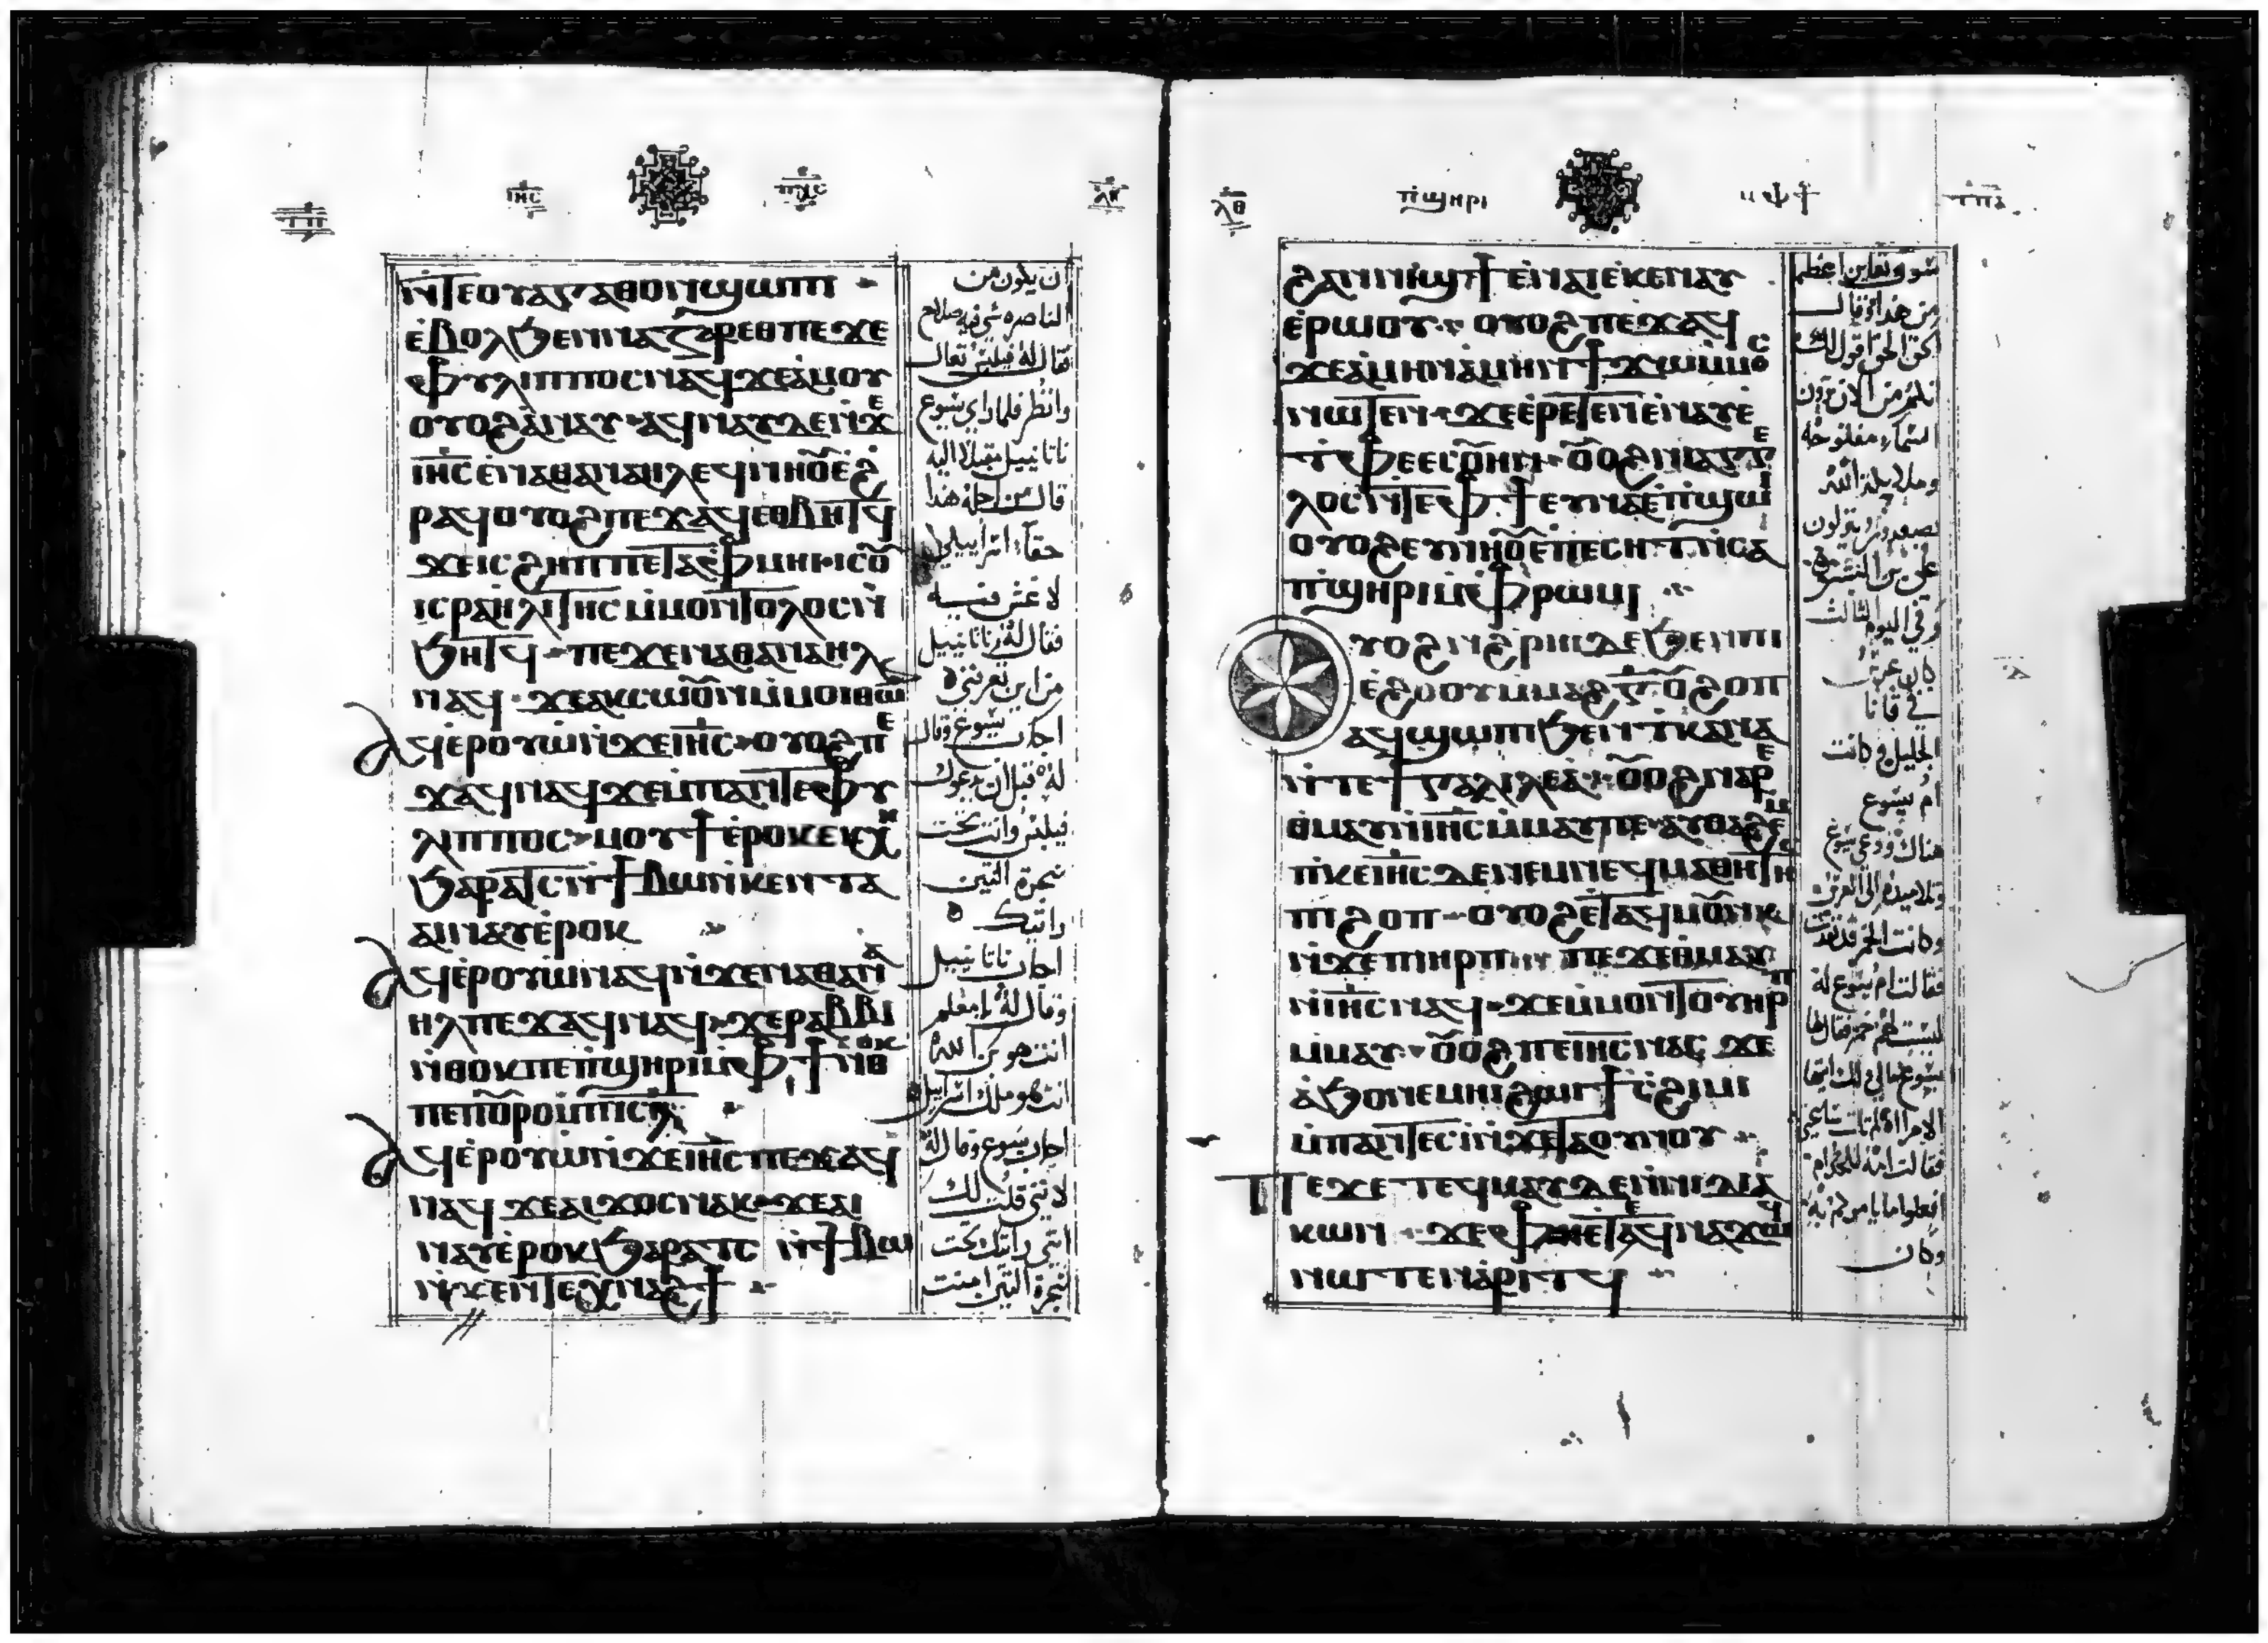 ⲓⲏⲥ ⲡⲭⲥ ⲗⲏ
ⲛ̀ⲧⲉⲟⲩⲁⲅⲁⲑⲟⲛϣⲱⲡⲓ
ⲉ̀ⲃⲟⲗϧⲉⲛⲛⲁⲍⲁⲣⲉⲑⲡⲉϫⲉ
ⲫⲩⲗⲓⲡⲡⲟⲥⲛⲁϥϫⲉⲁ̀ⲙⲟⲩ
ⲟⲩⲟϩⲁ̀ⲛⲁⲩ ⲁϥⲛⲁⲩⲇⲉⲛ̀ϫⲉ
ⲓⲏⲥⲉⲛⲁⲑⲁⲛⲁⲏⲗⲉϥⲛⲏⲟⲩⲉ̀ϩ
ⲣⲁϥⲟⲩⲟϩⲡⲉϫⲁϥⲉⲑⲃⲏⲧϥ
ϫⲉⲓⲥϩⲏⲡⲡⲉⲧⲁⲫⲙⲏⲓⲓⲥⲟⲩ
ⲓⲥⲣⲁⲏⲗⲓⲧⲏⲥⲙ̀ⲙⲟⲛⲧⲟⲗⲟⲥⲛ̀
ϧⲏⲧϥ ⲡⲉϫⲉⲛⲁⲑⲁⲛⲁⲏⲗ
ⲛⲁϥ ϫⲉⲁⲕⲥⲱⲟⲩⲛⲙ̀ⲙⲟⲓⲑⲱ
ⲁϥⲉ̀ⲣⲟⲩⲱⲛ̀ϫⲉⲓⲏⲥ ⲟⲩⲟϩⲡⲉ
ϫⲁϥⲛⲁϥϫⲉⲙ̀ⲡⲁⲛⲧⲉⲫⲩ
ⲗⲓⲡⲡⲟⲥ ⲙⲟⲩϯⲉ̀ⲣⲟⲕⲉⲕⲭⲏ
ϧⲁⲣⲁⲧⲥⲛ̀ϯⲃⲱⲛ̀ⲕⲉⲛⲧⲁ
ⲁⲓⲛⲁⲩⲉ̀ⲣⲟⲕ
ⲁϥⲉ̀ⲣⲟⲩⲱⲛⲁϥⲛ̀ϫⲉⲛⲁⲑⲁⲛⲁ
ⲏⲗⲡⲉϫⲁϥⲛⲁϥ ϫⲉⲣⲁⲃⲃⲓ
ⲛ̀ⲑⲟⲕⲡⲉⲡ̀ϣⲏⲣⲓⲙ̀ⲫϯⲛ̀ⲑⲟⲕ
ⲡⲉⲡⲟⲩⲣⲟⲙ̀ⲡⲓⲥⲗ
ⲁϥⲉ̀ⲣⲟⲩⲱⲛ̀ϫⲉⲓⲏⲥⲡⲉϫⲁϥ
ⲛⲁϥ ϫⲉⲁⲓϫⲟⲥⲛⲁⲕ ϫⲉⲁⲓ
ⲛⲁⲩⲉ̀ⲣⲟⲕϧⲁⲣⲁⲧⲥ ⲛ̀ϯⲃⲱ
ⲛ̀ⲕⲉⲛⲧⲉⲭⲛⲁϩϯ
ان يكون من
الناصره شي فيه صلاح
فقال له فيلبس تعال
وانظر فلما راي يسوع
ناتانييل مقبلا اليه
قال من اجله هذا
حقا اسراييلي
لا غش فيه
فقال له ناتانييل
من اين تعرفني
اجاب يسوع وقال
له قبل ان يدعوك
فيلبس وانت تحت
شجرة التين
رايتك
اجاب ناتانييل
وقال له يا معلم
انت هو ابن الله
انت هو ملك اسراييل
اجاب يسوع وقال له
لانني قلت لك
انني رايتك تحت
شجرة التين امنت
ⲗⲑ ⲡ̀ϣⲏⲣⲓ ⲙ̀ⲫϯ
ϩⲁⲛⲛⲓϣϯⲉⲛⲁⲓⲉⲕⲉⲛⲁⲩ
ⲉ̀ⲣⲱⲟⲩ ⲟⲩⲟϩⲡⲉϫⲁϥ
ϫⲉⲁ̀ⲙⲏⲛⲁ̀ⲙⲏⲛϯϫⲱⲙ̀ⲙⲟⲥ
ⲛⲱⲧⲉⲛ ϫⲉⲉ̀ⲣⲉⲧⲉⲛⲉ̀ⲛⲁⲩⲉ̀
ⲧ̀ⲫⲉⲉⲥⲟⲩⲏⲛ ⲟⲩⲟϩⲛⲓⲁⲅⲅⲉ
ⲗⲟⲥⲛ̀ⲧⲉⲫϯⲉⲩⲛⲁⲉ̀ⲡ̀ϣⲱⲓ
ⲟⲩⲟϩⲉⲩⲛⲏⲟⲩⲉ̀ⲡⲉⲥⲏⲧⲡⲓⲥⲁ
ⲡ̀ϣⲏⲣⲓⲙ̀ⲫⲣⲱⲙⲓ
ⲟⲩⲟϩⲛ̀ϩⲣⲏⲓⲇⲉϧⲉⲛⲡⲓ
ⲉ̀ϩⲟⲟⲩⲙ̀ⲙⲁϩⲅ̅ⲟⲩϩⲟⲡ
ⲁϥϣⲱⲡⲓϧⲉⲛⲧ̀ⲕⲁⲛⲁ
ⲛ̀ⲧⲉϯⲅⲁⲗⲓⲗⲉⲁ̀ ⲟⲩⲟϩⲛⲁⲣⲉ
ⲑ̀ⲙⲁⲩⲛ̀ⲓⲏⲥⲙ̀ⲙⲁⲩⲡⲉ ⲁⲩⲑⲁϩⲉⲙ
ⲡ̀ⲕⲉⲓⲏⲥⲇⲉⲛⲉⲙⲛⲉϥⲙⲁⲑⲏⲧⲏⲥ
ⲡⲓϩⲟⲡ ⲟⲩⲟϩⲉ̀ⲧⲁϥⲙⲟⲩⲛⲕ
ⲛ̀ϫⲉⲡⲓⲏⲣⲡ ⲡⲉϫⲉⲑ̀ⲙⲁⲩ
ⲛ̀ⲓⲏⲥⲛⲁϥ ϫⲉⲙ̀ⲙⲟⲛⲧⲟⲩⲏⲣⲡ
ⲙ̀ⲙⲁⲩ ⲟⲩⲟϩⲡⲉⲓⲏⲥⲛⲁⲥ ϫⲉ
ⲁ̀ϧⲟⲛⲉⲙⲏⲓϩⲱⲓϯⲥ̀ϩⲓⲙⲓ
ⲙ̀ⲡⲁⲧⲉⲥⲓ̀ⲛ̀ϫⲉⲧⲁⲟⲩⲛⲟⲩ
ⲡⲉϫⲉⲧⲉϥⲙⲁⲩⲇⲉⲛ̀ⲛⲓⲇⲓⲁ
ⲕⲱⲛ ϫⲉⲫⲏⲉ̀ⲧⲉϥⲛⲁϫⲟϥ
ⲛⲱⲧⲉⲛⲁ̀ⲣⲓⲧϥ
سوف تعاين اعظم
من هذا وقال
الحق الحق اقول لكم
انكم من الان ترون
السماء مفتوحة
وملايكة الله
يصعدون وينزلون
علي ابن البشر
وفي اليوم الثالث
كان عرس
في قانا
الجليل وكانت
ام يسوع
هناك ودعي يسوع
وتلاميذه الي العرس
وكانت الخمر قد نفدت
فقالت ام يسوع له
ليس لهم خمر فقال لها
يسوع مالي ولك ايتها
الامراة لم تات ساعتي
فقالت امه للخدام
افعلوا ما يامركم به
وكان